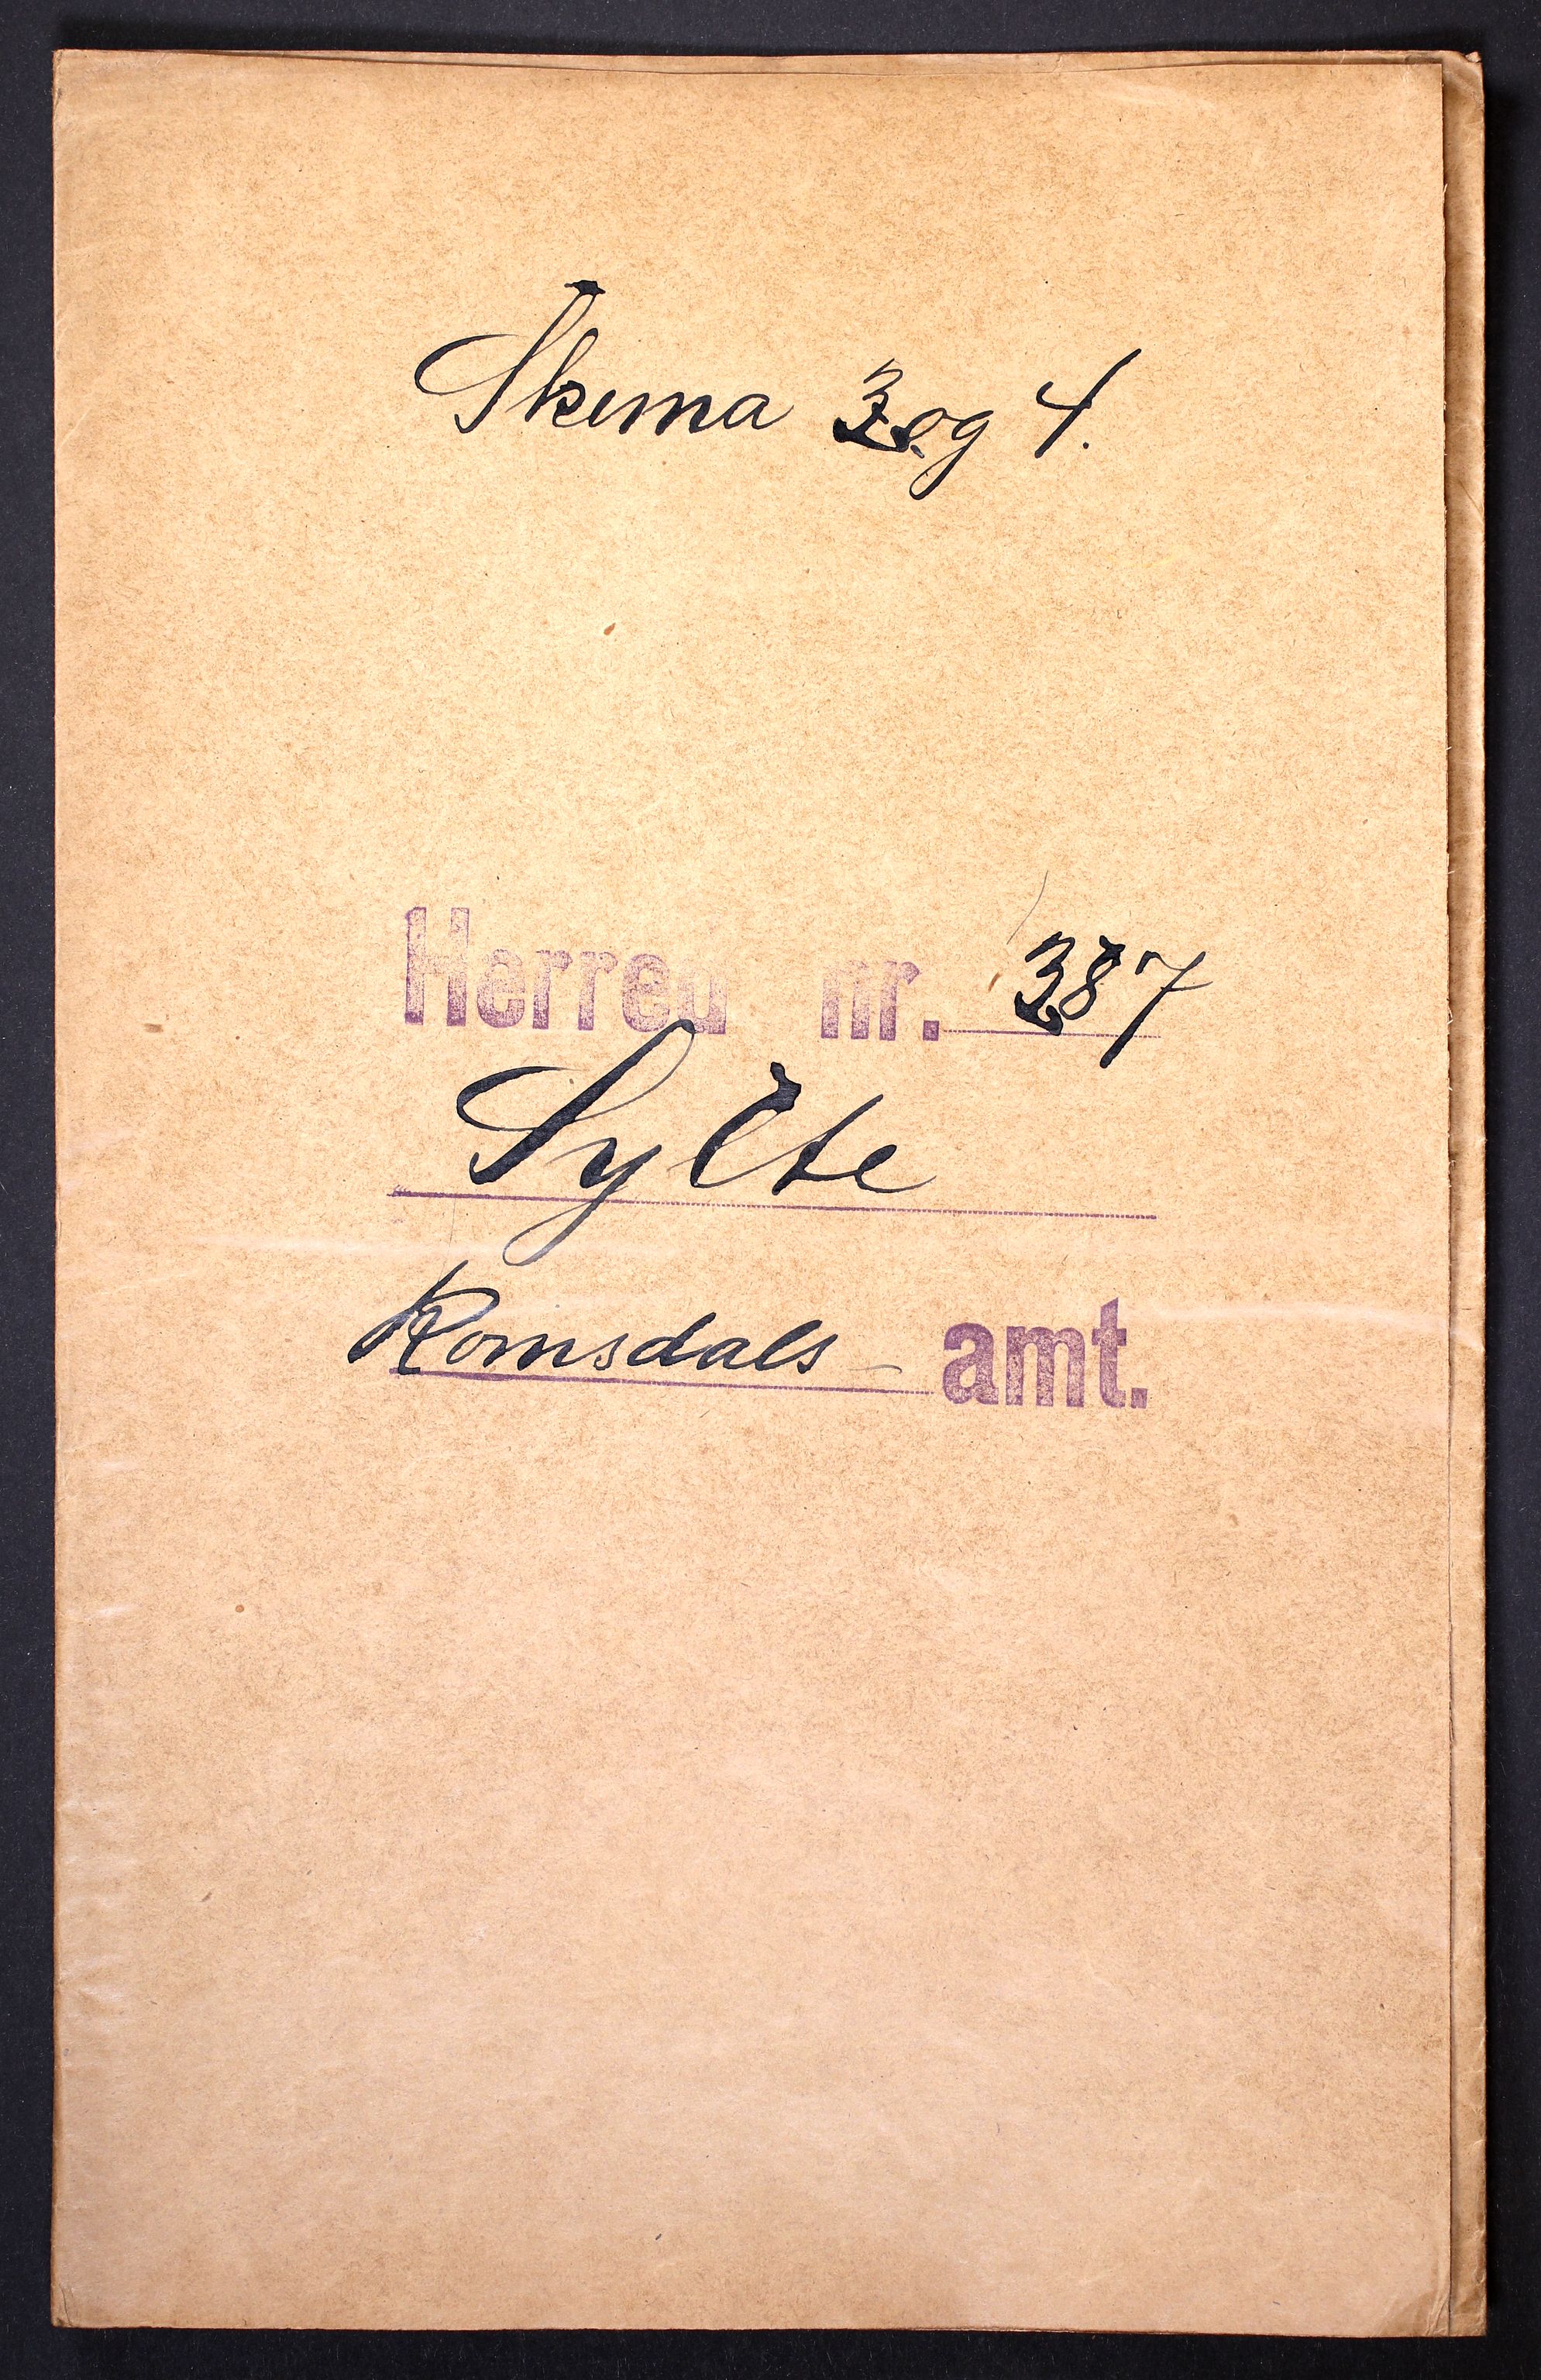 Skema 3 og 4.
Herred nr. 387
Sylte
Romsdals amt.